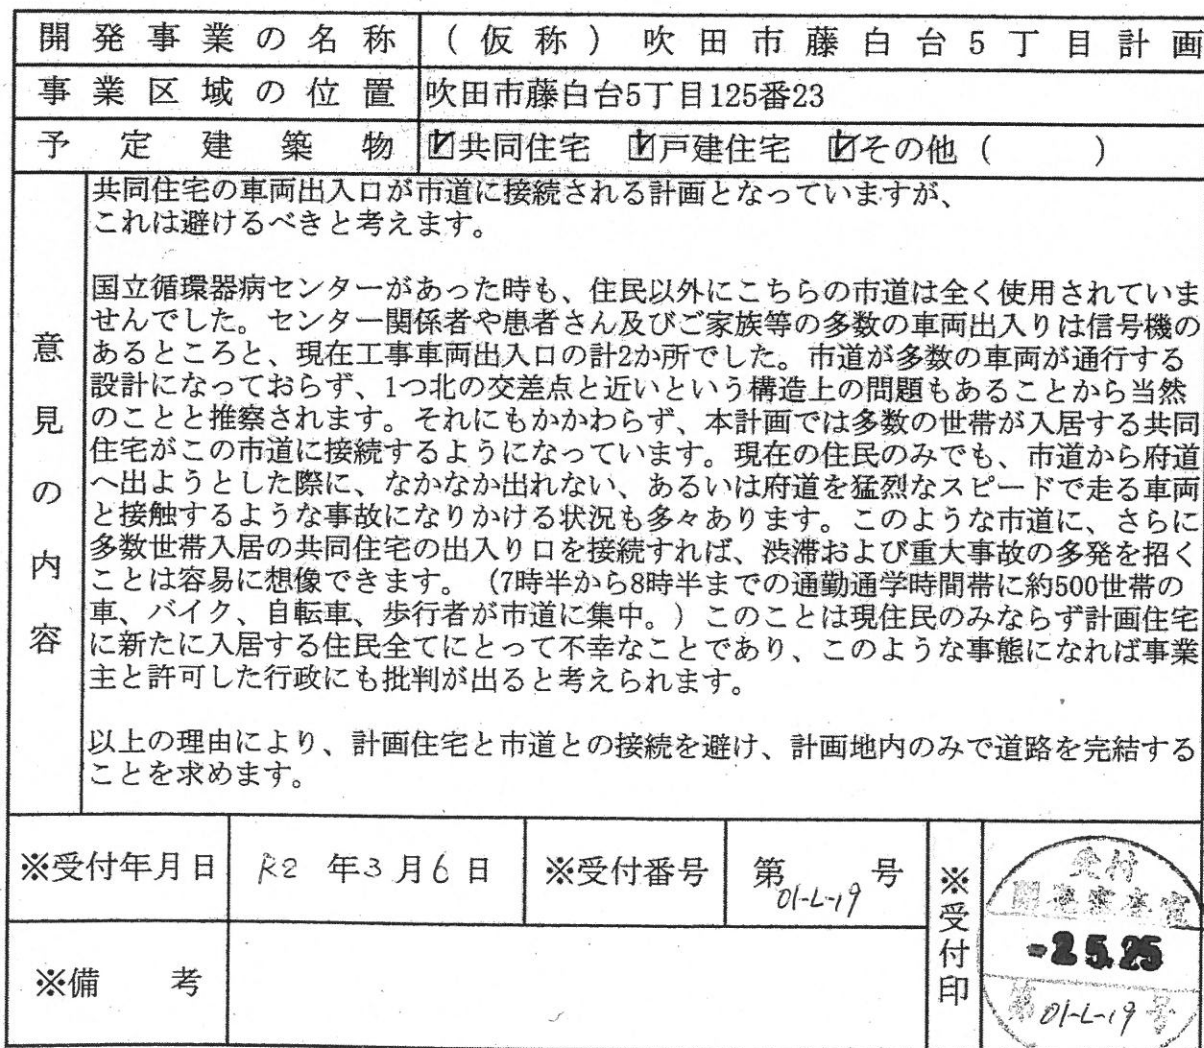 開発事業の名称 （仮称）吹田市藤白台5丁目計画
事業区域の位置 吹田市藤白台5丁目125番23
予定建築物 ☑共同住宅 ☑戸建住宅 ☑その他（ ）
意見の内容
共同住宅の車両出入口が市道に接続される計画となっていますが、
これは避けるべきと考えます。
国立循環器病センターがあった時も、住民以外にこちらの市道は全く使用されていま
せんでした。センター関係者や患者さん及びご家族等の多数の車両出入りは信号機の
あるところと、現在工事車両出入口の計2か所でした。市道が多数の車両が通行する
設計になっておらず、1つ北の交差点と近いという構造上の問題もあることから当然
のことと推察されます。それにもかかわらず、本計画では多数の世帯が入居する共同
住宅がこの市道に接続するようになっています。現在の住民のみでも、市道から府道
へ出ようとした際に、なかなか出れない、あるいは府道を猛烈なスピードで走る車両
と接触するような事故になりかける状況も多々あります。このような市道に、さらに
多数世帯入居の共同住宅の出入り口を接続すれば、渋滞および重大事故の多発を招く
ことは容易に想像できます。（7時半から8時半までの通勤通学時間帯に約500世帯の
車、バイク、自転車、歩行者が市道に集中。）このことは現住民のみならず計画住宅
に新たに入居する住民全てにとって不幸なことであり、このような事態になれば事業
主と許可した行政にも批判が出ると考えられます。
以上の理由により、計画住宅と市道との接続を避け、計画地内のみで道路を完結する
ことを求めます。
※受付年月日 R2 年 3 月 6 日 ※受付番号 第 01-L-19 号
※備考
※受付印
受付
開発審査室
-2.5.25
第 01-L-19 号